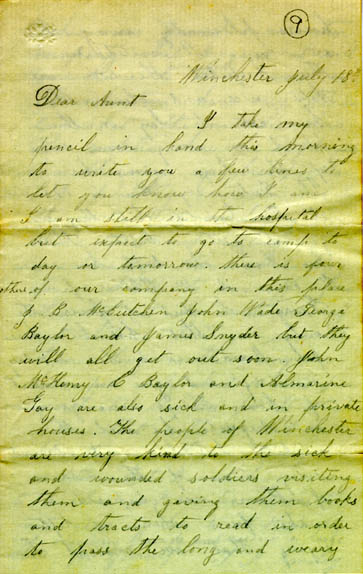 9
Winchester July 18th
Dear Aunt
I take my
pencil in hand this morning
to write you a few lines to
let you know how I am
I am still in the hospital
but expect to go to camp to
day or tomorrow. there is four
others of our company in this place
J B McCutchen John Wade George
Baylor and James Snyder but they
will all get out soon. John
McHenry C Baylor and Almarine
Gay are also sick and in private
houses. The people of Winchester
are very kind to the sick
and wounded soldiers visiting
them and giving them books
and tracts to read in order
to pass the long and weary